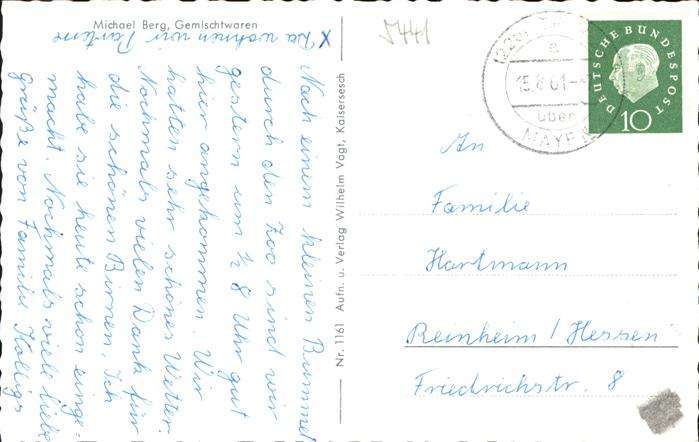 Michael Berg, Gemischtwaren
x Da wohnen wir Parterre
Nach einem kleinen Bummel
durch den Zoo sind wir
gestern um ½ 8 Uhr gut
hier angekommen. Wir
hatten sehr schönes Wetter.
Nochmals vielen Dank für
die schönen Birnen. Ich
habe sie heute schon einge-
macht. Nochmals viele liebe
Grüße von Familie
Nr. 1161 Aufn. u. Verlag Wilhelm Vogt, Kaisersesch
5441
(22b)
a
15.8.61
über
MAYEN
DEUTSCHE BUNDESPOST
10
An
Familie
Hartmann
Reinheim / Hessen
Friedrichstr. 8